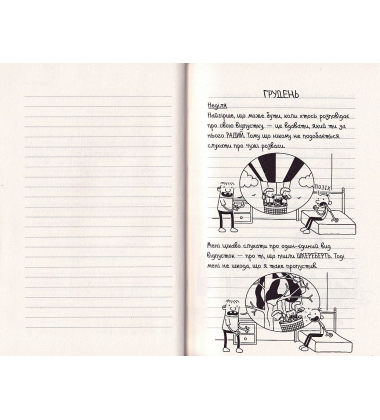 ГРУДЕНЬ
Неділя
Найгірше, що може бути, коли хтось розповідає
про свою відпустку, — це вдавати, який ти за
нього РАДИЙ. Тому що нікому не подобається
слухати про чужі розваги.
Мені цікаво слухати про один-єдиний вид
відпусток — про ті, що пішли ШКЕРЕБЕРТЬ. Тоді
мені не шкода, що я таке пропустив.